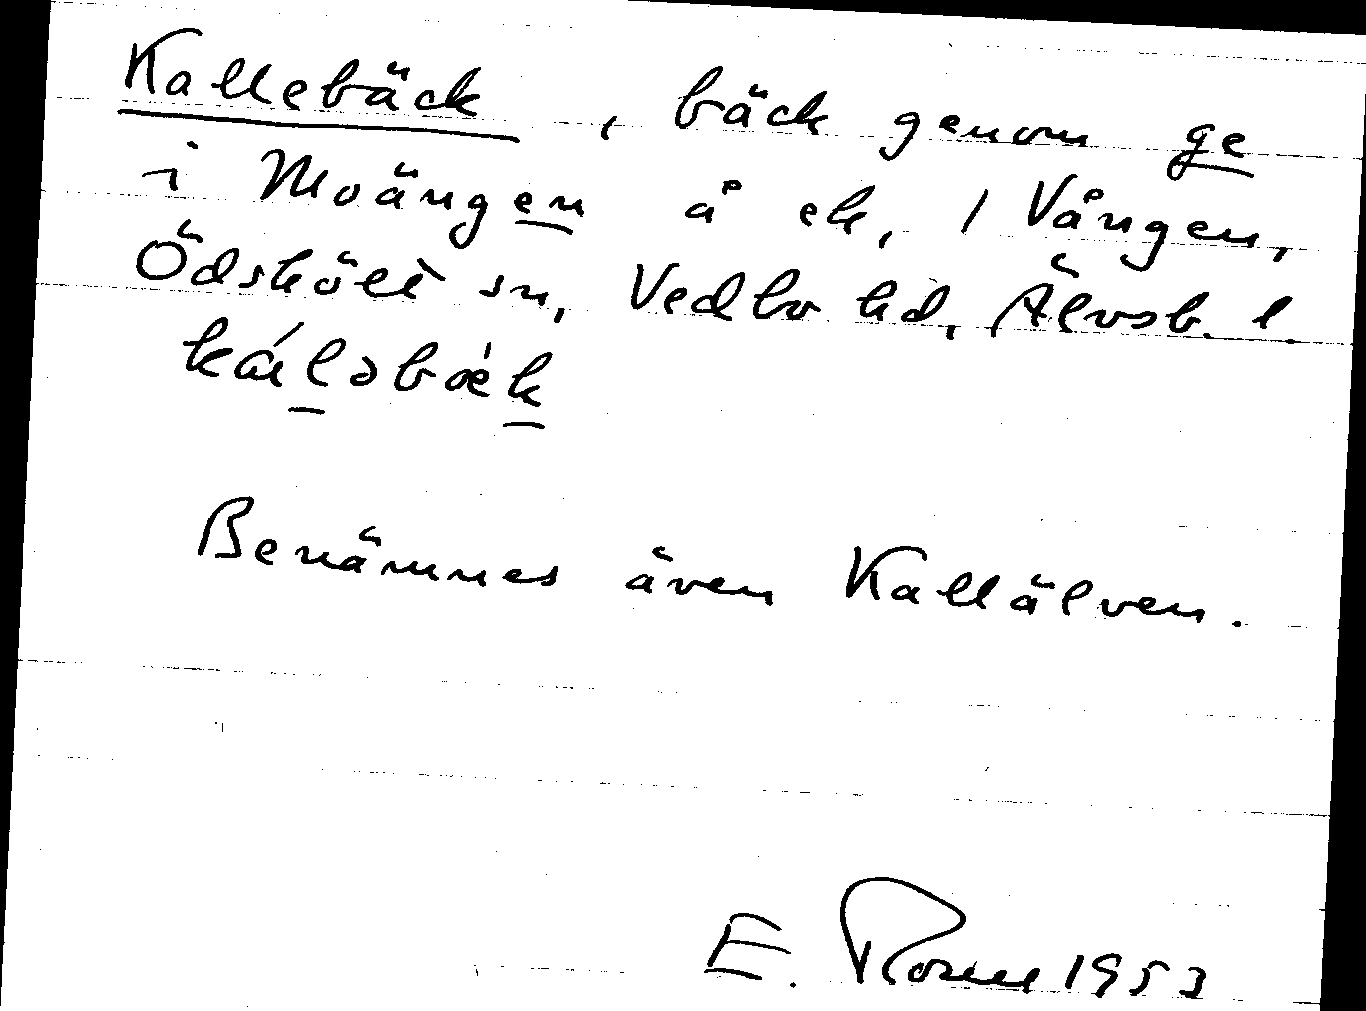 Kallebäck, bäck genom ge
i Moängen å ek, 1 Vången,
Ödskölt sn, Vedbo hd, Älvsb. l.
kálǝbæ̀k
Benämnes även Kallälven.
E. Rosell 1953